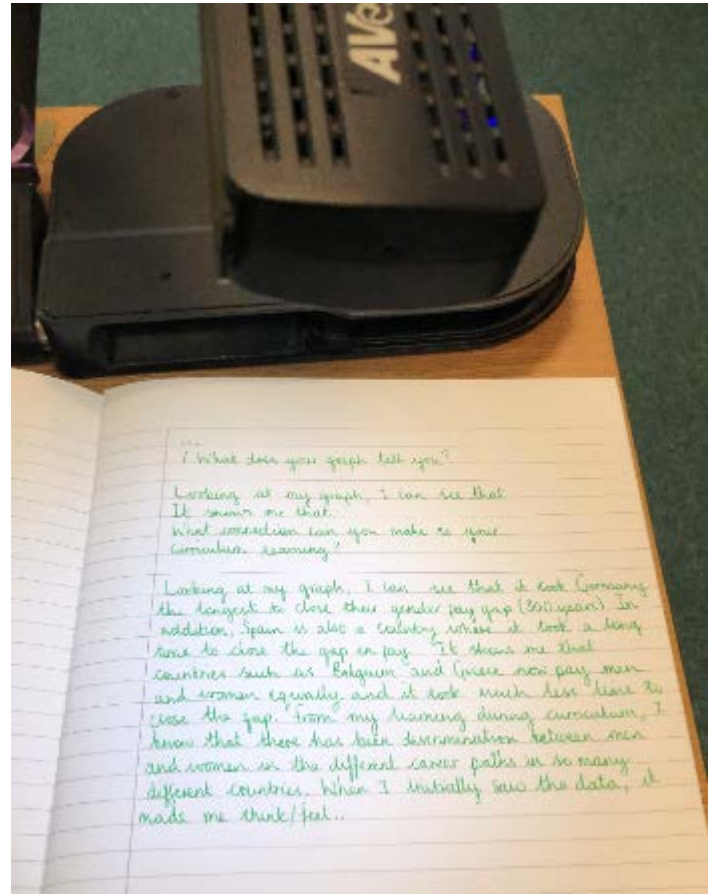 AVe
...
1 What does your graph tell you?
Looking at my graph, I can see that
It shows me that
What connection can you make to your
curriculum learning?
Looking at my graph, I can see that it took Germany
the longest to close their gender pay gap (300 years) In
addition, Spain is also a country where it took a long
time to close the gap in pay. It shows me that
countries such as Belgium and Greece now pay men
and women equally and it took much less time to
close the gap. From my learning during curriculum, I
know that there has been discrimination between men
and women in the different career paths in so many
different countries. When I initially saw the data, it
made me think/feel..